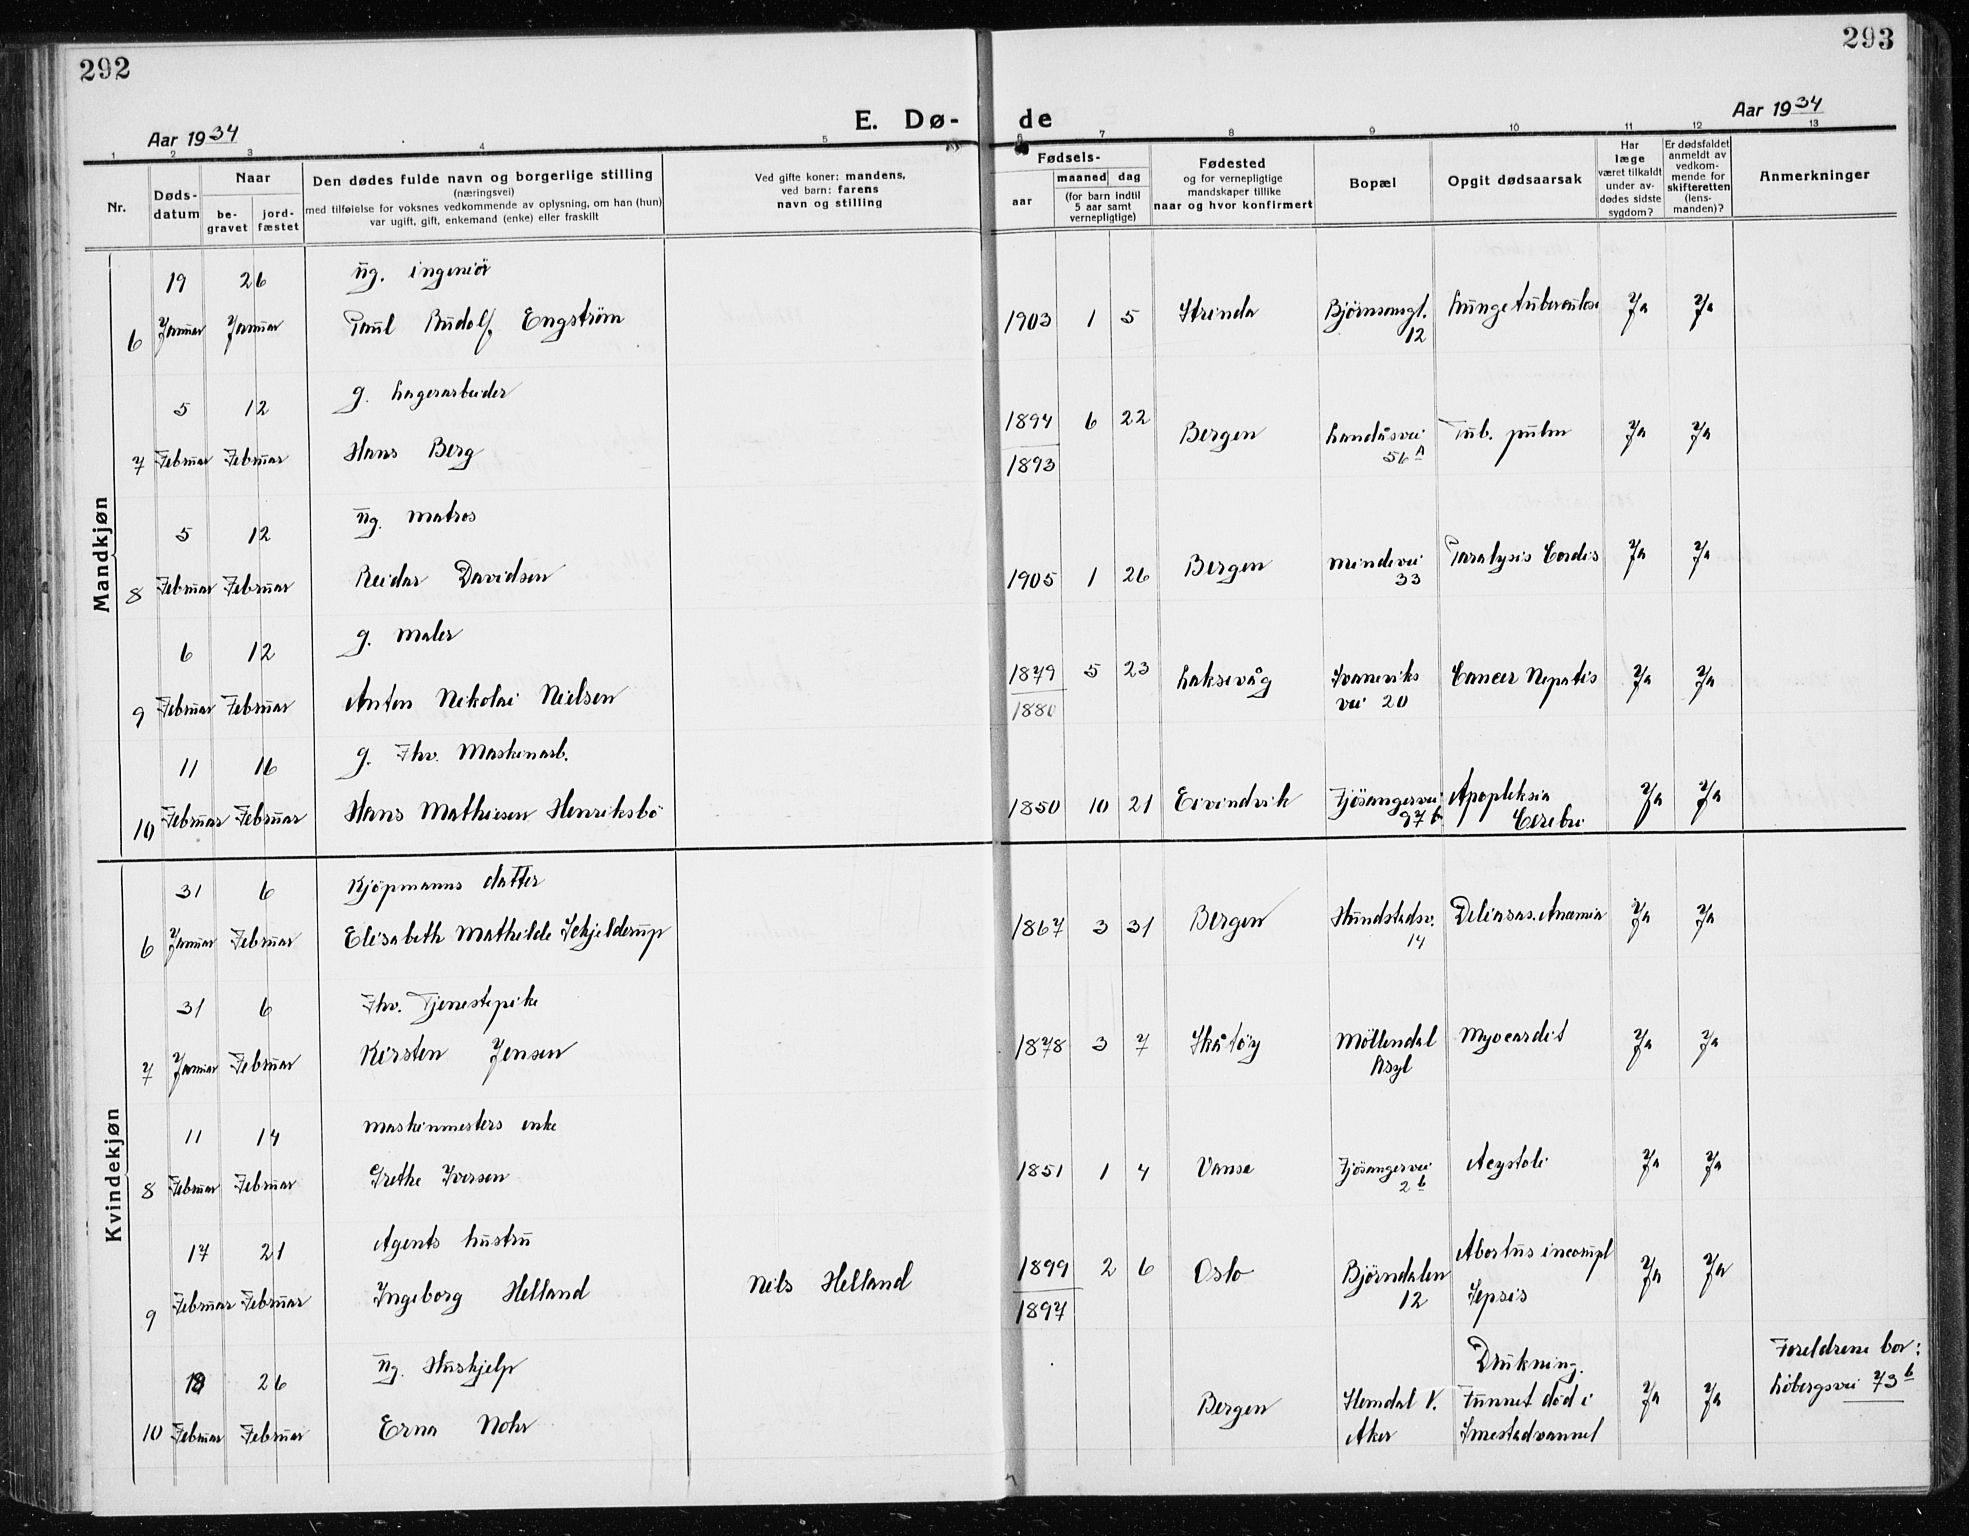 292
293
Aar 1934
E. Dø-
de
Aar 1934
1 2 3 4 5 6 7 8 9 10 11 12 13
Nr.
Døds-
datum
Naar
be-
gravet
jord-
fæstet
Den dødes fulde navn og borgerlige stilling
(næringsvei)
med tilføielse for voksnes vedkommende av oplysning, om han (hun)
var ugift, gift, enkemand (enke) eller fraskilt
Ved gifte koner: mandens,
ved barn: farens
navn og stilling
Fødsels-
aar
maaned dag
(for barn indtil
5 aar samt
vernepligtige)
Fødested
og for vernepligtige
mandskaper tillike
naar og hvor konfirmert
Bopæl
Opgit dødsaarsak
Har
læge
været tilkaldt
under av-
dødes sidste
sygdom?
Er dødsfaldet
anmeldt av
vedkom-
mende for
skifteretten
(lens-
manden)?
Anmerkninger
Mandkjøn
19 26 ug. ingeniör
6 Januar Januar Paul Rudolf Engström 1903 1 5 Strinda Björnsonsgt. Lungetuberkulose Ja Ja
12
5 12 g. Lagerarbeider
1894 6 22
7 Februar Februar Hans Berg Bergen Landåsvei Tub. pulm Ja Ja
56 A
1893
5 12 ug. matros
8 Februar Februar Reidar Davidsen 1905 1 26 Bergen Mindevei Paralysis Cordis Ja Ja
33
6 12 g. maler
1879 5 23
9 Februar Februar Anton Nikolai Nielsen Laksevåg Svaneviks Cancer Hepatis Ja Ja
vei 20
1880
11 16 g. Fhv. Maskinarb.
10 Februar Februar Hans Mathiesen Henriksbö 1850 10 21 Eivindvik Fjösangervei Apopleksia Ja Ja
97 b Cerebri
Kvindekjøn
31 6 Kjöpmanns datter
6 Januar Februar Elisabeth Mathilde Schjelderup 1867 3 31 Bergen Anæmia Ja Ja
14
31 6 Fhv. Tjenestepike
7 Januar Februar Kirsten Jensen 1878 3 7 Skåtöy Möllendal Myocardit Ja Ja
Asyl
11 14 maskinmesters enke
8 Februar Februar Grethe Iversen 1851 1 4 Vanse Fjösangervei Acystoli Ja Ja
2 b
17 21 Agents hustru
9 Februar Februar Ingeborg Helland Nils Helland 1899 2 6 Oslo Björndalen Abortus incompl Ja Ja
12 Sepsis
1897
18 26 ug. Huskjelp
10 Februar Februar Erna Nohr Bergen Slemdal V. Drukning. Ja Ja Foreldrene bor:
Aker Funnet död i Löbergsvei 73 b
Smestadvannet